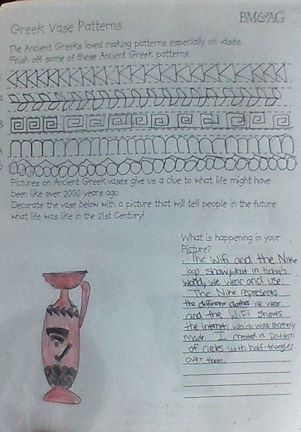 Greek Vase Patterns
BM&AG
The Ancient Greeks loved making patterns especially on vases.
Finish off some of these Ancient Greek patterns.
Pictures on Ancient Greek vases give us a clue to what life might have
been like over 2000 years ago.
Decorate the vase below with a picture that will tell people in the future
what life was like in the 21st Century!
What is happening in your
Picture?
The Wifi and the Nike
logo show what in today's
world, we wear and use.
The Nike represents
the different clothes we wear
and the WiFi shows
the internet which was recently
made. I created a pattern
of circles with half-triangles
over them.